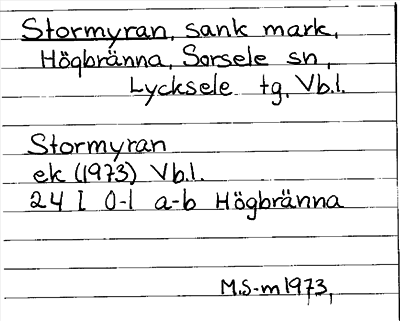 Stormyran, sank mark,
Högbränna, Sorsele sn,
Lycksele tg, Vb.l.
Stormyran
ek (1973) Vb.l.
24 I 0-1 a-b Högbränna
M.S-m 1973,